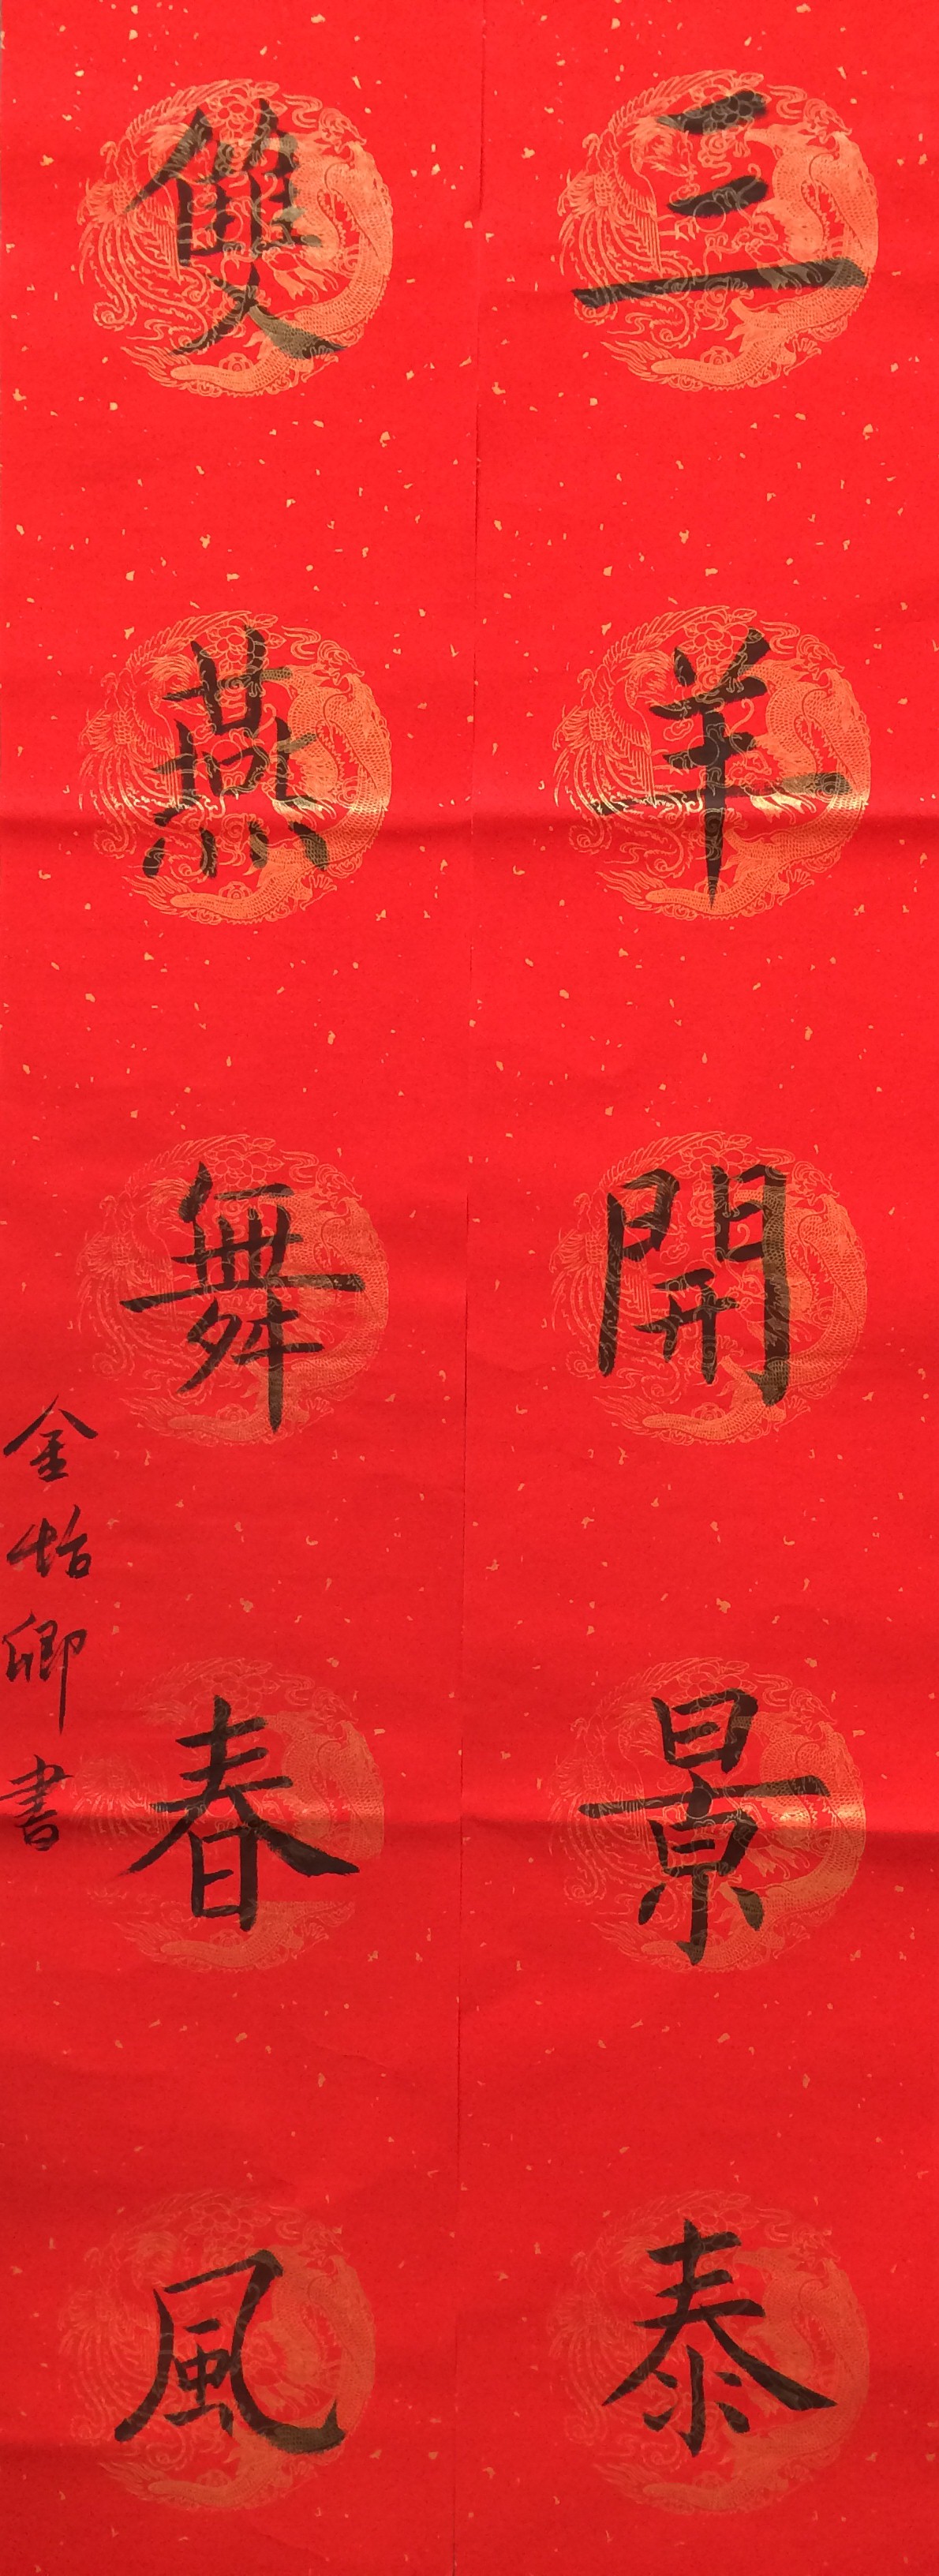 三羊開景泰
雙燕舞春風
金怡卿書